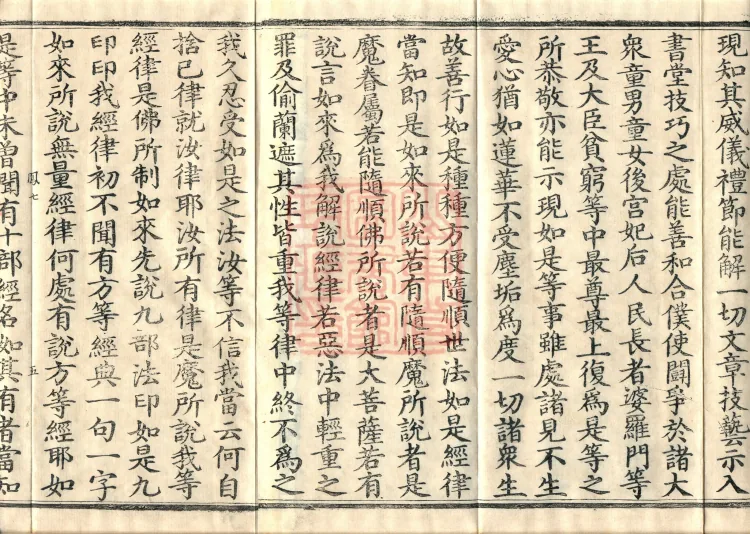 現知其威儀禮節能解一切文章技藝示入
書堂技巧之處能善和合僕使鬪爭於諸大
衆童男童女後宮妃后人民長者婆羅門等
王及大臣貧窮等中最尊最上復爲是等之
所恭敬亦能示現如是等事雖處諸見不生
愛心猶如蓮華不受塵垢爲度一切諸衆生
故善行如是種種方便隨順世法如是經律
當知即是如來所說若有隨順魔所說者是
魔眷屬若能隨順佛所說者是大菩薩若有
說言如來爲我解說經律若惡法中輕重之
罪及偷蘭遮其性皆重我等律中終不爲之
我久忍受如是之法汝等不信我當云何自
捨已律就汝律耶汝所有律是魔所說我等
經律是佛所制如來先說九部法印如是九
印印我經律初不聞有方等經典一句一字
如來所說無量經律何處有說方等經耶如
鳳七 五
是等中未曾聞有十部經名如其有者當知